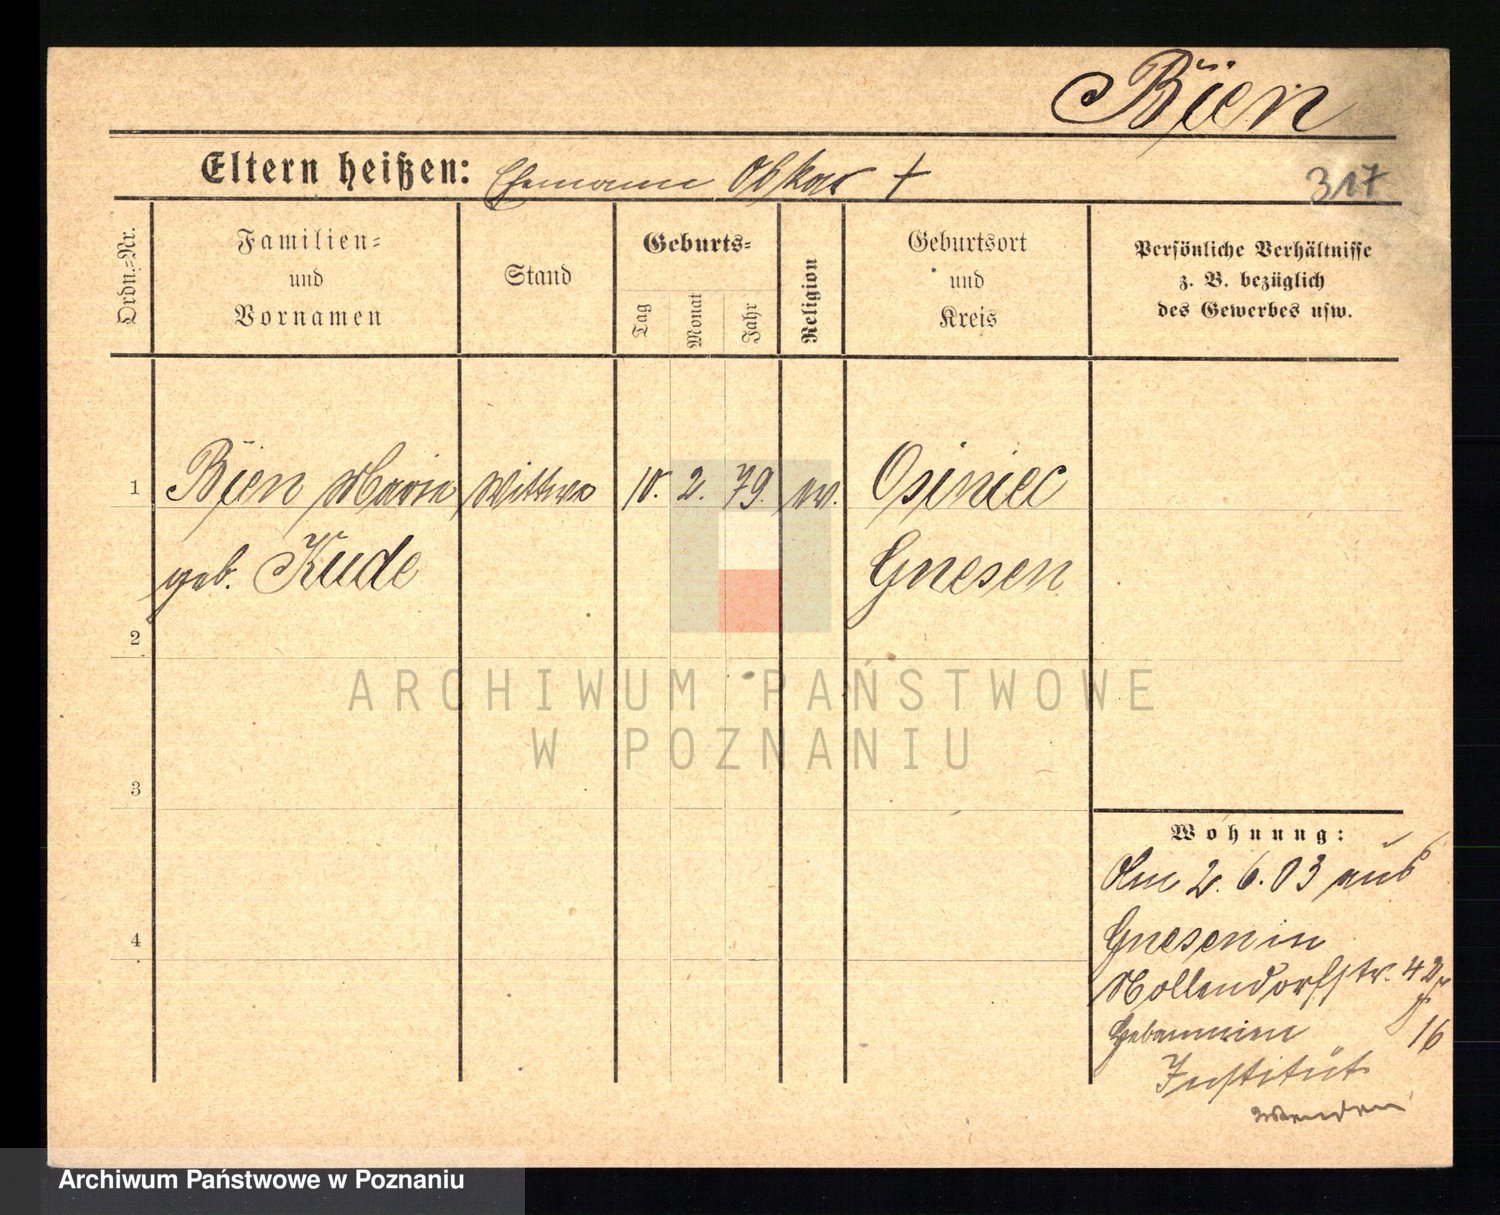 Bien
Eltern heißen: Ehemann Oskar +
317
Ordn.-Nr.
Familien-
und
Vornamen
Stand
Geburts-
Tag
Monat
Jahr
Religion
Geburtsort
und
Kreis
Persönliche Verhältnisse
z. B. bezüglich
des Gewerbes usw.
1 Bien Marie Wittwe 10. 2. 79. ev. Osiniec
geb. Kude Gnesen
2
3
4
Wohnung:
Am 2. 6. 03 aus
Gnesen in
Nollendorfstr. 42
Hebammen 16
Institut
wenden
ARCHIWUM PAŃSTWOWE
W POZNANIU
Archiwum Państwowe w Poznaniu